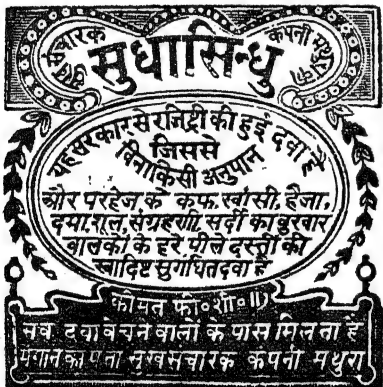 सुख संचारक
कंपनी मथुरा का
सुधासिन्धु
यह सरकार से रजिष्ट्री की हुई दवा है
जिससे
बिनाकिसी अनुपान
और परहेज के कफ, खांसी, हैजा,
दमा, शूल, संग्रहणी, सर्दी का बुखार
बालकों के हरे पीले दस्तों की
स्वादिष्ट सुगंधित दवा है
कीमत फी॰ शी॰ ॥)
सब दवा बेचने वालों के पास मिलता है
मंगाने का पता सुखसंचारक कंपनी मथुरा